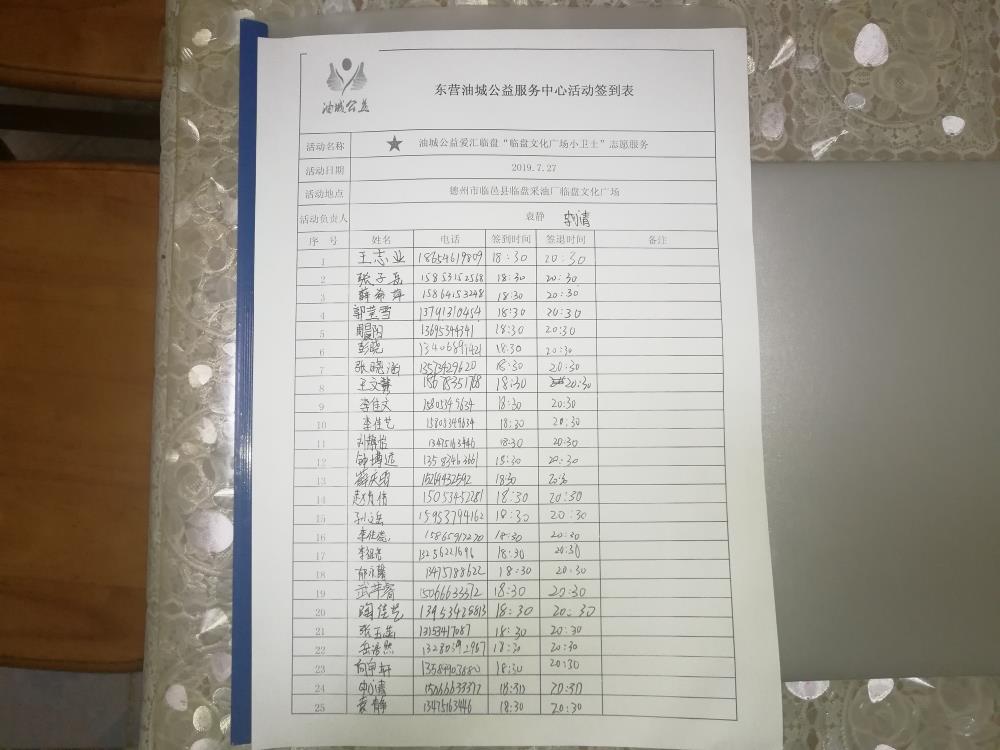 油城公益
东营油城公益服务中心活动签到表
活动名称 ★ 油城公益爱汇临盘“临盘文化广场小卫士”志愿服务
活动日期 2019.7.27
活动地点 德州市临邑县临盘采油厂临盘文化广场
活动负责人 袁静
序 号 姓名 电话 签到时间 签退时间 备注
1 王志业 18654619809 18:30 20:30
2 张子岳 15853152568 18:30 20:30
3 薛希萍 15864153248 18:30 20:30
4 郭芸雪 13791310454 18:30 20:30
5 周晨阳 13695344341 18:30 20:30
6 彭晓 18:30 20:30
7 张晓涵 13573429620 18:30 20:30
8 王文馨 18:30 20:30
9 李佳文 15805349634 18:30 20:30
10 李佳艺 15805349634 18:30 20:30
11 刘静怡 13475163446 18:30 20:30
12 13583463661 18:30 20:30
13 15269432592 18:30 20:30
14 15053452281 18:30 20:30
15 孙文岳 15953794162 18:30 20:30
16 15865917270 18:30 20:30
17 13256221696 18:30 20:30
18 郁永馨 13475788622 18:30 20:30
19 武苹睿 15066633372 18:30 20:30
20 陶佳艺 13953425813 18:30 20:30
21 张玉涵 13153417087 18:30 20:30
22 岳浩然 18:30 20:30
23 18:30 20:30
24 15066633377 18:30 20:30
25 袁静 13475163446 18:30 20:30